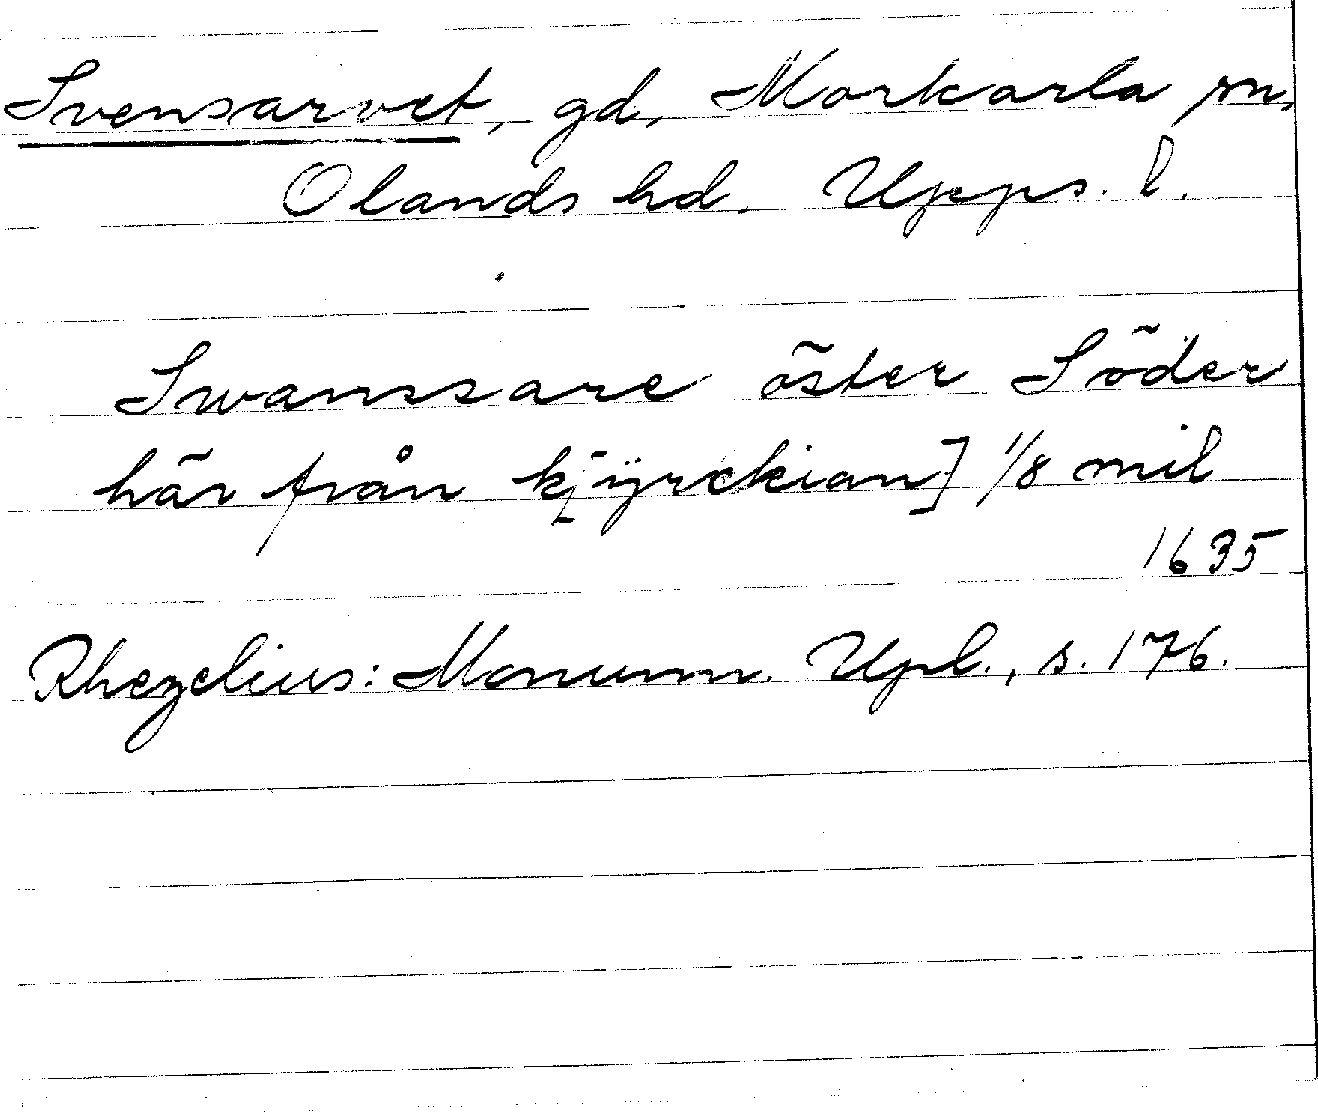 Svensarvet, gd, Morkarla sn,
Olands hd. Upps. l.
Swanssare öster Söder
här från k[yrckian] 1/8 mil
1635
Rhezelius: Monum. Upl., s. 176.